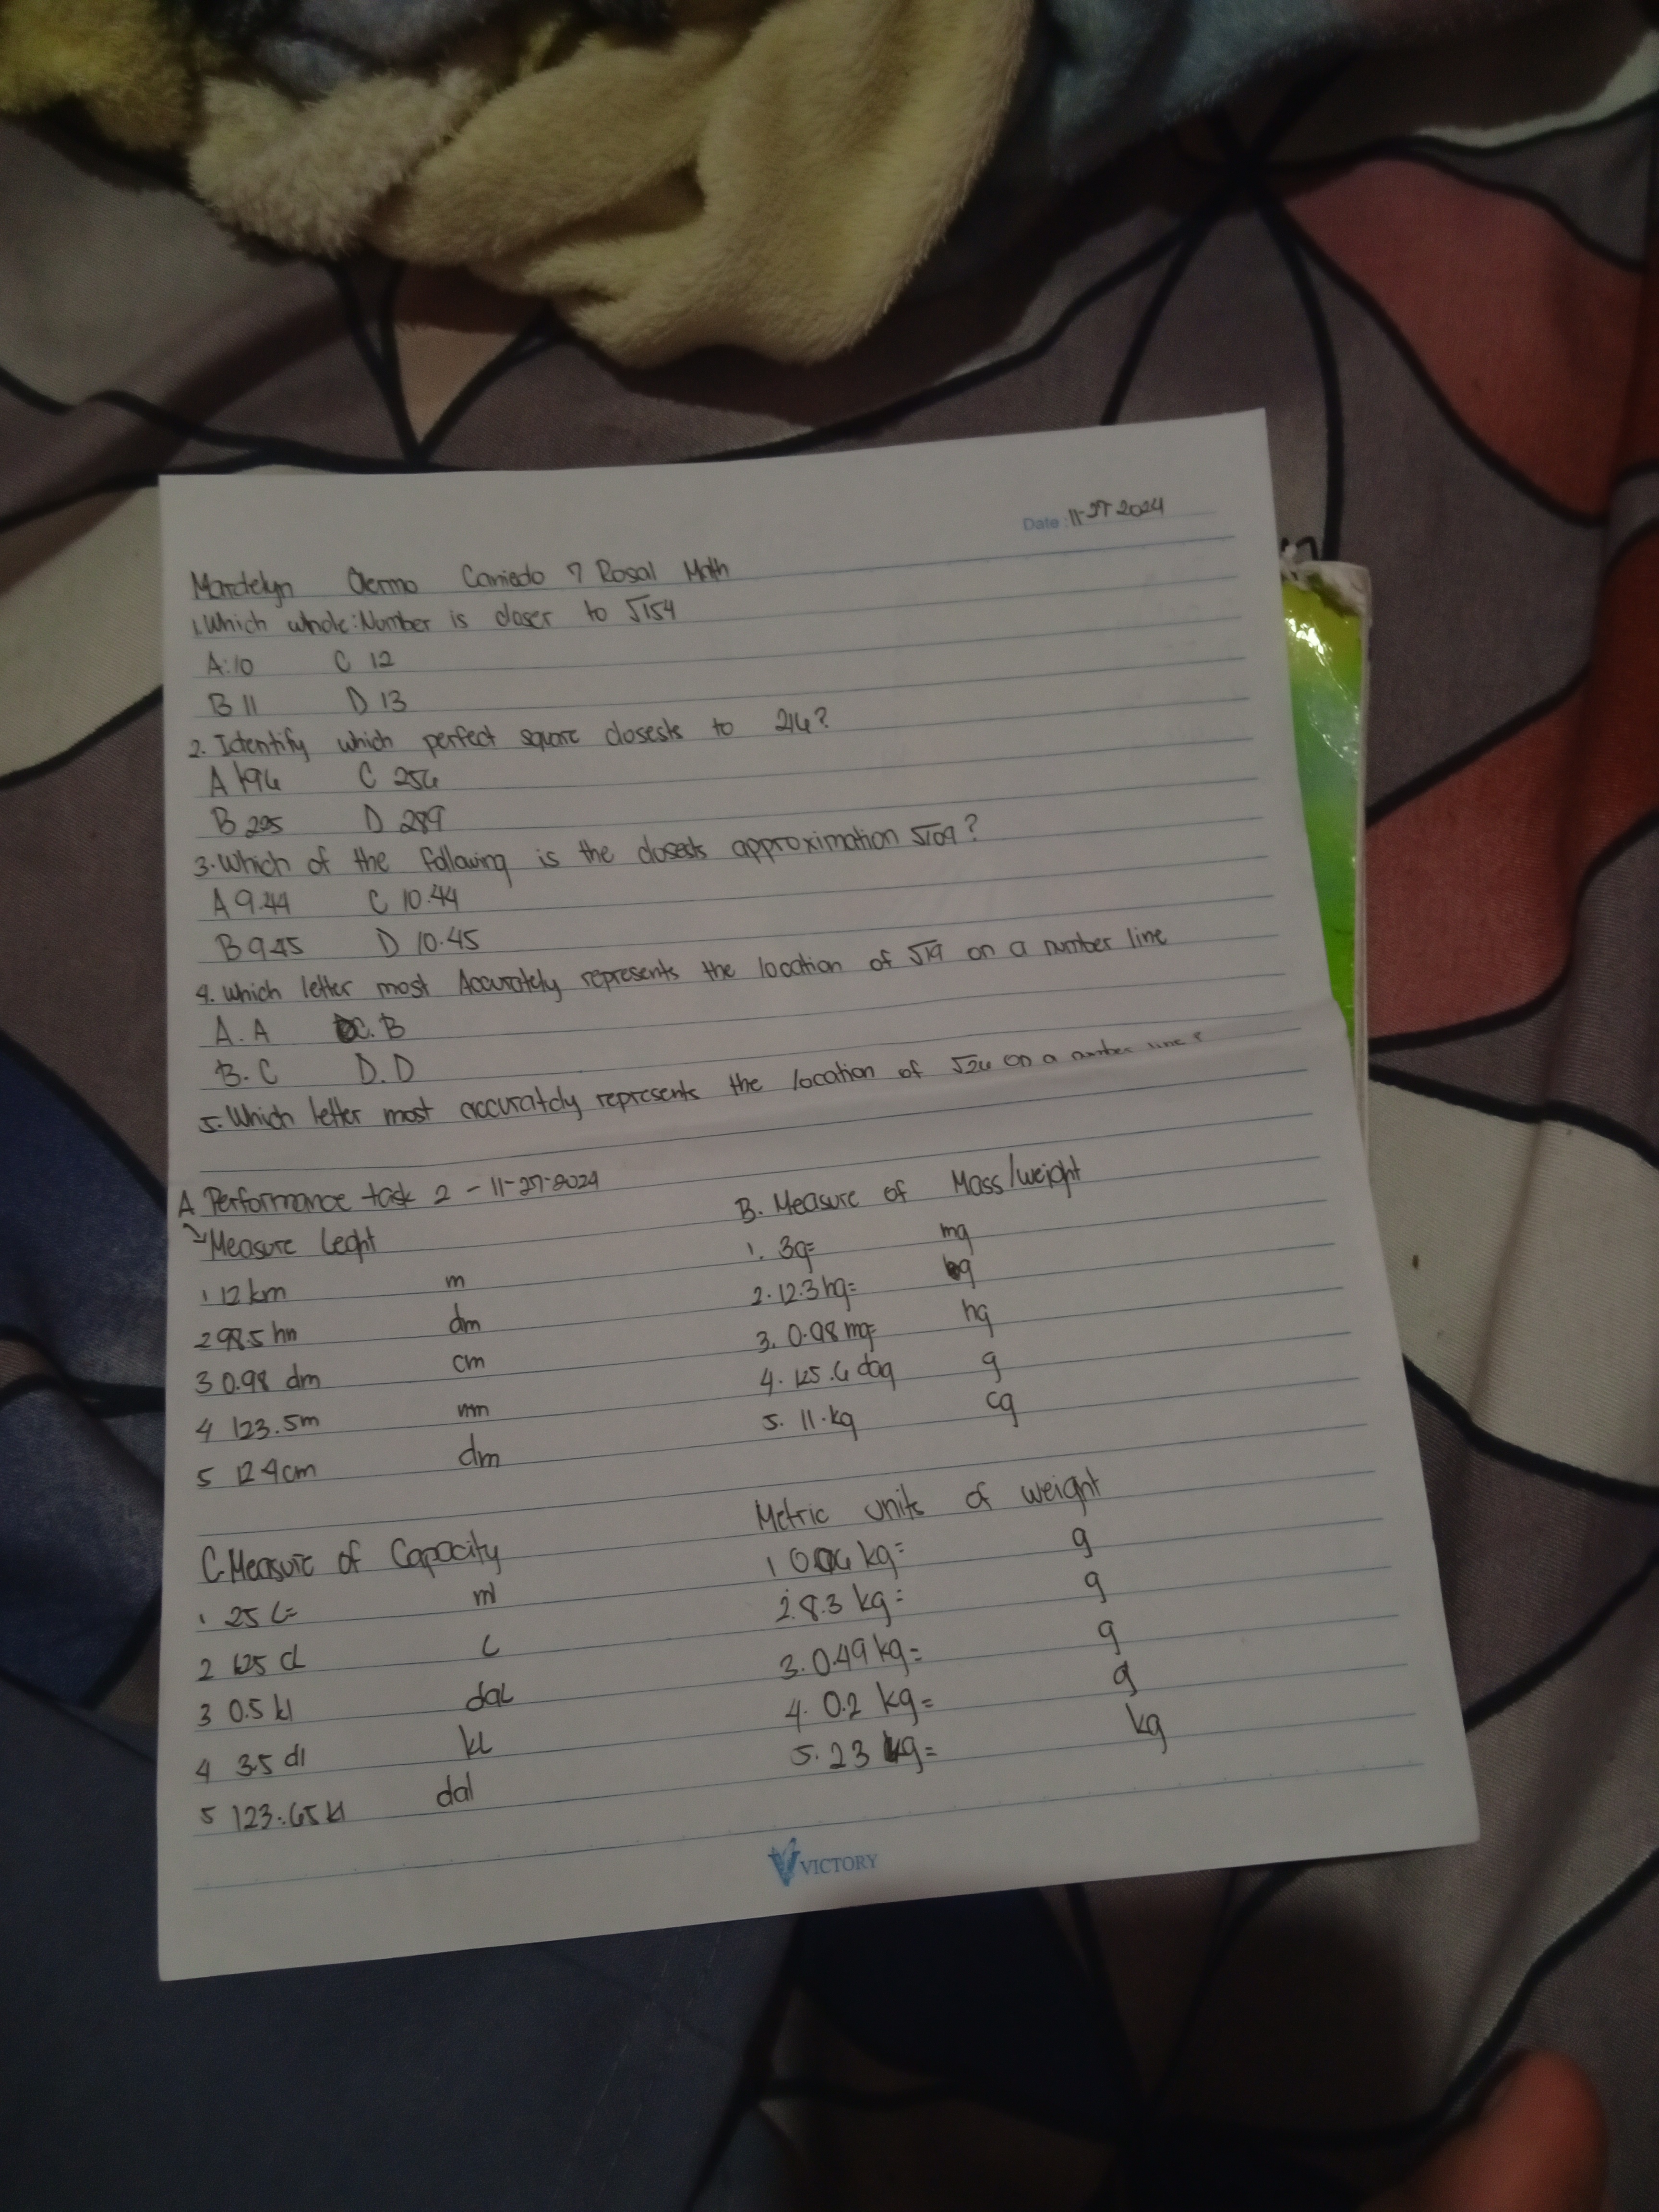 Date: 11-27 2024
Mardelyn Caniedo 7 Rosal Math
1. Which whole: Number is closer to √154
A. 10 C 12
B 11 D 13
2. Identify which perfect square closests to 216?
A 196 C 256
B 225 D 289
3. Which of the following is the closests approximation √109?
A 9.44 C 10.44
B 9.45 D 10.45
4. Which letter most Accurately represents the location of √19 on a number line
A. A C. B
B. C D. D
5. Which letter most accurately represents the location of √26 on a number line?
A Performance task 2 - 11-27-2024
Measure Leght
1 12 km m
2 98.5 hm dm
3 0.98 dm cm
4 123.5m mm
5 124cm dm
B. Measure of Mass/weight
1. 3g= mg
2. 12.3 hg=
3. 0.98 mg= hg
4. 125.6 dag g
5. 11.kg cg
C. Measure of Capacity
1 25 L= ml
2 125 cl L
3 0.5 kl daL
4 35 dl kL
5 123.65 kl dal
Metric units of weight
1 kg= g
2. 8.3 kg= g
3. 0.49 kg= g
4. 0.2 kg= g
5. 23 kg= kg
VICTORY